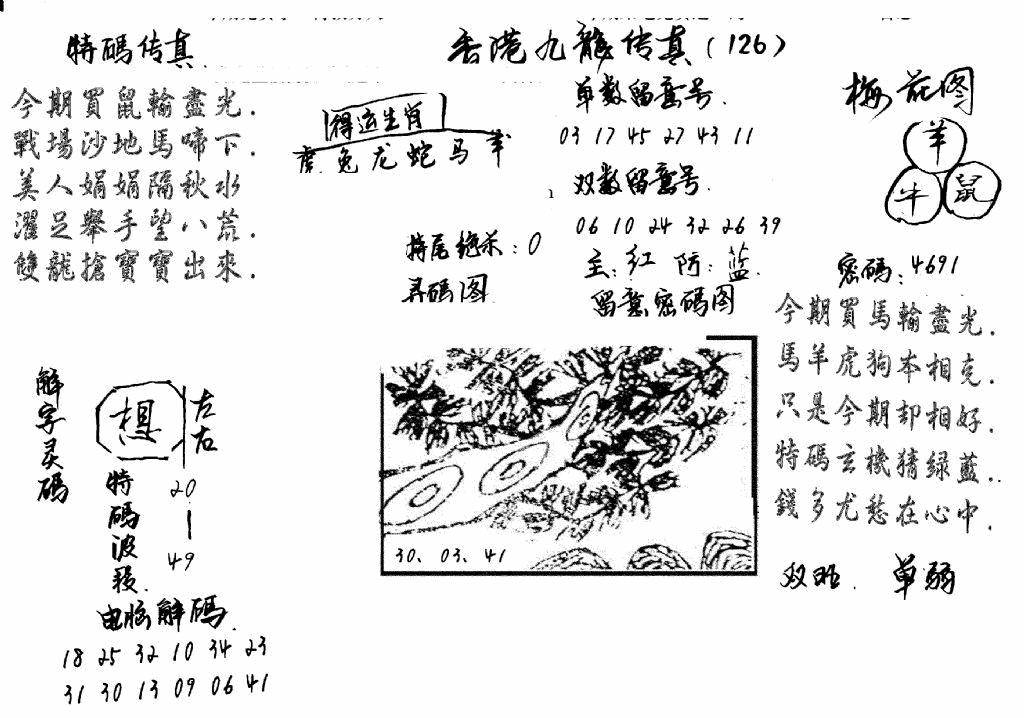 特碼传真
香港九龍传真(126)
今期買鼠輸盡光.
戰場沙地馬啼下.
美人娟娟隔秋水
濯足舉手望八荒.
雙龍搶寶寶出來.
得运生肖
虎兔龙蛇马羊
单数留意号.
03 17 45 27 43 11
双数留意号.
06 10 24 32 26 39
主:红 防:蓝.
特尾绝杀:0
寻码图
留意密碼图
梅花图
羊
牛 鼠
密碼:4691
今期買馬輸盡光.
馬羊虎狗本相克.
只是今期却相好.
特碼玄機猜绿藍..
錢多尤愁在心中.
双旺. 单弱
30、03、41
解字灵碼
想
左右
特碼波段.
20—49
电脑解碼.
18 25 32 10 34 23
31 30 13 09 06 41